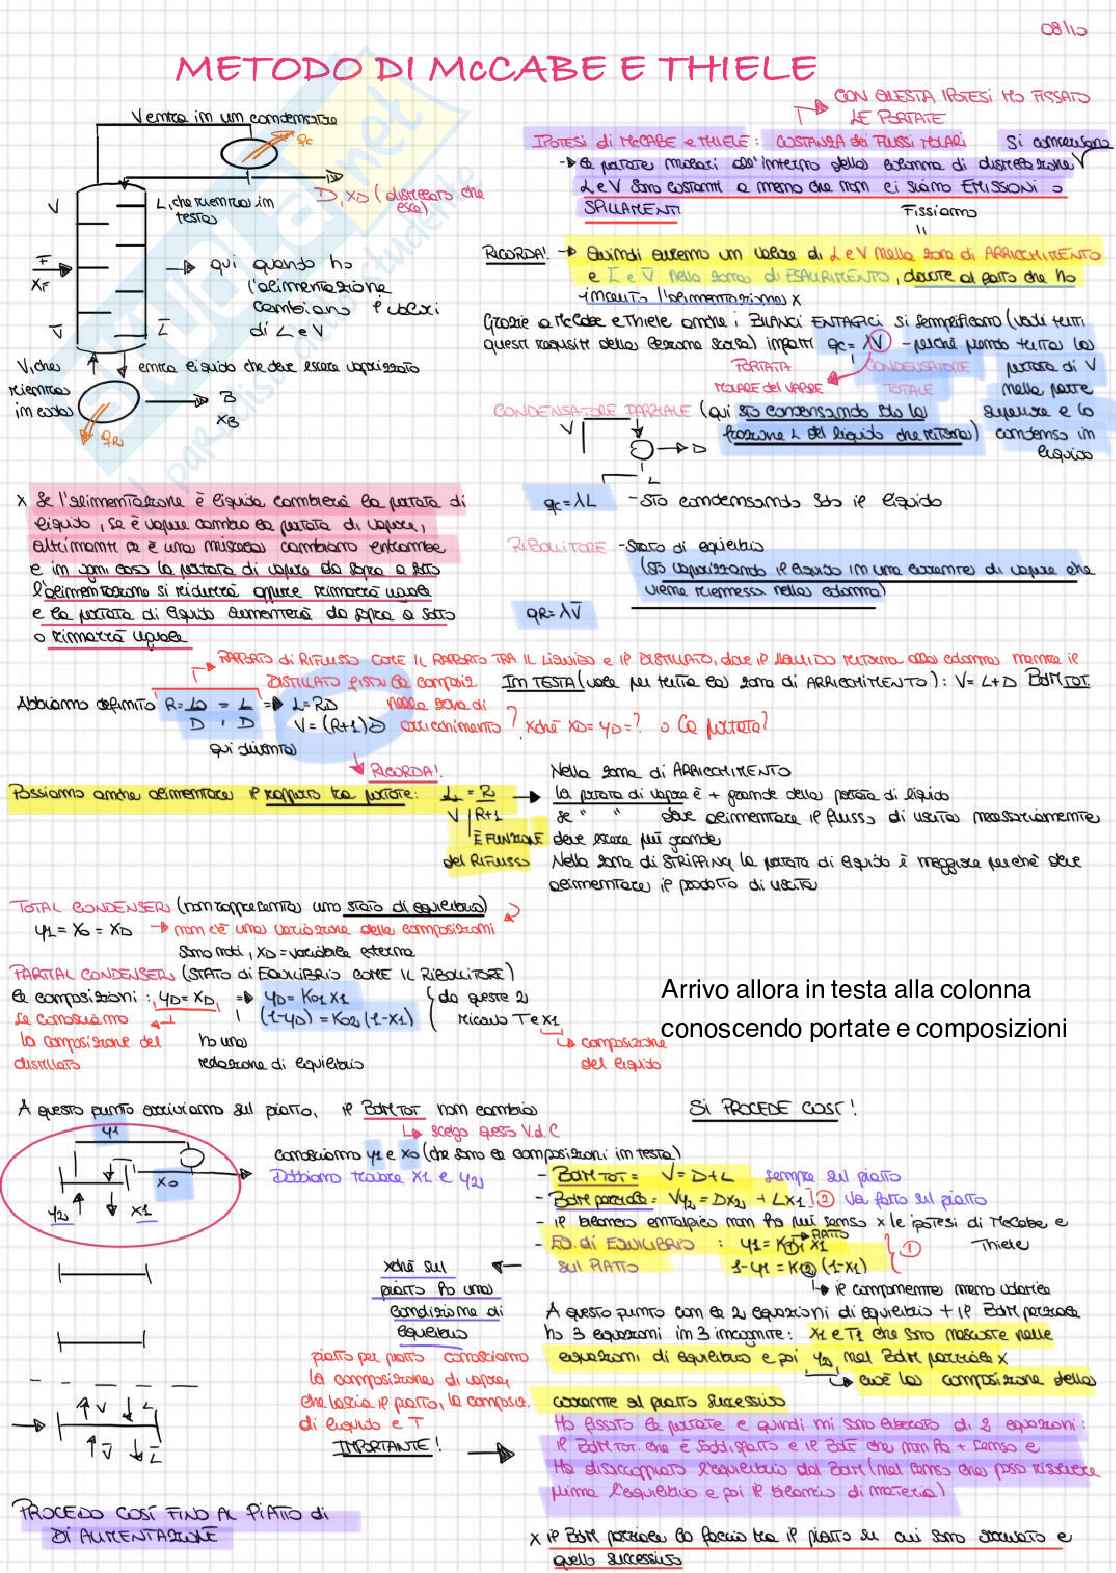 08/10
METODO DI McCABE E THIELE
CON QUESTA IPOTESI HO FISSATO
LE PORTATE
V entra in un condensatore
qc
IPOTESI di McCABE e THIELE: COSTANZA dei FLUSSI MOLARI
Si conservano
le portate molari all'interno della colonna di distillazione
L e V sono costanti a meno che non ci siano EMISSIONI o
SPILLAMENTI
Fissiamo
V
L, che rientra in
testa
D, XD (distillato che
esce)
F
XF
qui quando ho
l'alimentazione
cambiano i valori
di L e V
V̄
L̄
V, che
rientra
in coda
entra liquido che deve essere vaporizzato
B
XB
qR
RICORDA!
Quindi avremo un valore di L e V nella zona di ARRICCHIMENTO
e L̄ e V̄ nella zona di ESAURIMENTO, dovute al fatto che ho
immesso l'alimentazione x
Grazie a McCabe e Thiele anche i BILANCI ENTALPICI si semplificano (vedi tutti
questi requisiti della lezione scorsa) infatti qc = λV - perché prendo tutta la
portata di V
nella parte
superiore e lo
condenso in
liquido
PORTATA
MOLARE del VAPORE
CONDENSATORE
TOTALE
CONDENSATORE PARZIALE (qui sto condensando solo la
frazione L del liquido che ritorna)
V
D
L
qc = λL - sto condensando solo il liquido
x Se l'alimentazione è liquida cambierà la portata di
liquido, se è vapore cambio la portata di vapore,
altrimenti se è una miscela cambiano entrambe
e in ogni caso la portata di vapore da sopra a sotto
l'alimentazione si ridurrà oppure rimarrà uguale
e la portata di liquido aumenterà da sopra a sotto
o rimarrà uguale
RIBOLLITORE - Stato di equilibrio
(sto vaporizzando il liquido in una corrente di vapore che
viene riemessa nella colonna)
qR = λV̄
RAPPORTO di RIFLUSSO COME IL RAPPORTO TRA IL LIQUIDO e il DISTILLATO, dove il LIQUIDO ritorna alla colonna mentre il
DISTILLATO
IN TESTA (vale per tutta la zona di ARRICCHIMENTO): V = L+D BdM TOT
Abbiamo definito R = L0/D = L/D ⇒ L = RD
V = (R+1)D
nella zona di
arricchimento ? xché xD = yD = ? o la portata?
qui diventa
RICORDA!
Possiamo anche alimentare il rapporto tra portate: L/V = R/(R+1)
È FUNZIONE
del RIFLUSSO
Nella zona di ARRICCHIMENTO
la portata di vapore è + grande della portata di liquido
se " " deve alimentare il flusso di uscita necessariamente
deve essere più grande
Nella zona di STRIPPING la portata di liquido è maggiore perché deve
alimentare il prodotto di uscita
TOTAL CONDENSER (non rappresenta uno stato di equilibrio)
y1 = x0 = xD → non c'è una variazione della composizioni
sono noti, xD = variabile esterna
PARTIAL CONDENSER (STATO di EQUILIBRIO COME IL RIBOLLITORE)
le composizioni: yD = xD ⇒ yD = K01 x1
(1-yD) = K02 (1-x1)
da queste 2
ricavo T e x1
se conosciamo
la composizione del
distillato
ho una
relazione di equilibrio
composizione
del liquido
Arrivo allora in testa alla colonna
conoscendo portate e composizioni
A questo punto arriviamo sul piatto, il BdM TOT non cambia
scelgo questo V.d.C
SI PROCEDE COSÌ!
y1
x0
y2
x1
conosciamo y1 e x0 (che sono le composizioni in testa)
Dobbiamo trovare x1 e y2
- BdM TOT = V = D+L sempre sul piatto
- BdM parziale = Vy2 = DxD + Lx1 ② va fatto sul piatto
- il bilancio entalpico non ha più senso x le ipotesi di McCabe e
Thiele
- EQ. di EQUILIBRIO : y1 = K①1 x1
PIATTO
SUL PIATTO
1-y1 = K12 (1-x1)
①
il componente meno volatile
xché sul
piatto ho una
condizione di
equilibrio
A questo punto con le 2 equazioni di equilibrio + il BdM parziale
ho 3 equazioni in 3 incognite: x1 e T1 che sono nascoste nelle
equazioni di equilibrio e poi y2 nel BdM parziale x
cioè la composizione della
corrente al piatto successivo
piatto per piatto conosciamo
la composizione di vapore,
che lascia il piatto, la composiz.
di liquido e T
IMPORTANTE!
V
L
V̄
L̄
Ho fissato le portate e quindi mi sono liberato di 2 equazioni:
il BdM TOT che è soddisfatto e il BdE che non ha + senso e
Ho disaccoppiato l'equilibrio dal BdM (nel senso che posso risolvere
prima l'equilibrio e poi il bilancio di materia)
PROCEDO COSÌ FINO AL PIATTO di
DI ALIMENTAZIONE
x il BdM parziale lo faccio tra il piatto su cui sono arrivato e
quello successivo